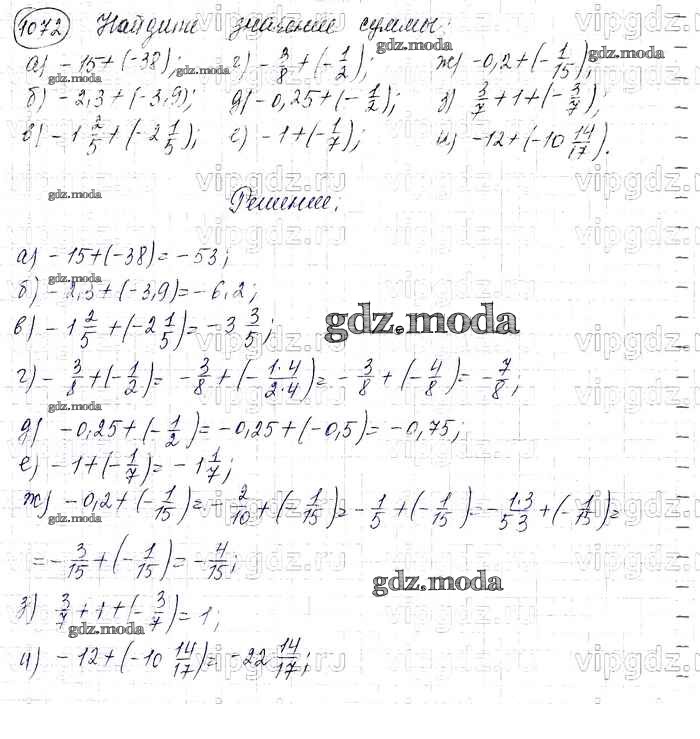 1072 Найдите значение суммы:
а) -15+(-38); г) -3/8+(-1/2); ж) -0,2+(-1/15);
б) -2,3+(-3,9); д) -0,25+(-1/2); з) 3/7+1+(-3/7);
в) -1 2/5+(-2 1/5); е) -1+(-1/7); и) -12+(-10 14/17).
Решение:
а) -15+(-38)=-53;
б) -2,3+(-3,9)=-6,2;
в) -1 2/5+(-2 1/5)=-3 3/5;
gdz.moda
г) -3/8+(-1/2)=-3/8+(-1·4/2·4)=-3/8+(-4/8)=-7/8;
д) -0,25+(-1/2)=-0,25+(-0,5)=-0,75;
е) -1+(-1/7)=-1 1/7;
ж) -0,2+(-1/15)=-2/10+(-1/15)=-1/5+(-1/15)=-1·3/5·3+(-1/15)=
=-3/15+(-1/15)=-4/15;
gdz.moda
з) 3/7+1+(-3/7)=1;
и) -12+(-10 14/17)=-22 14/17;